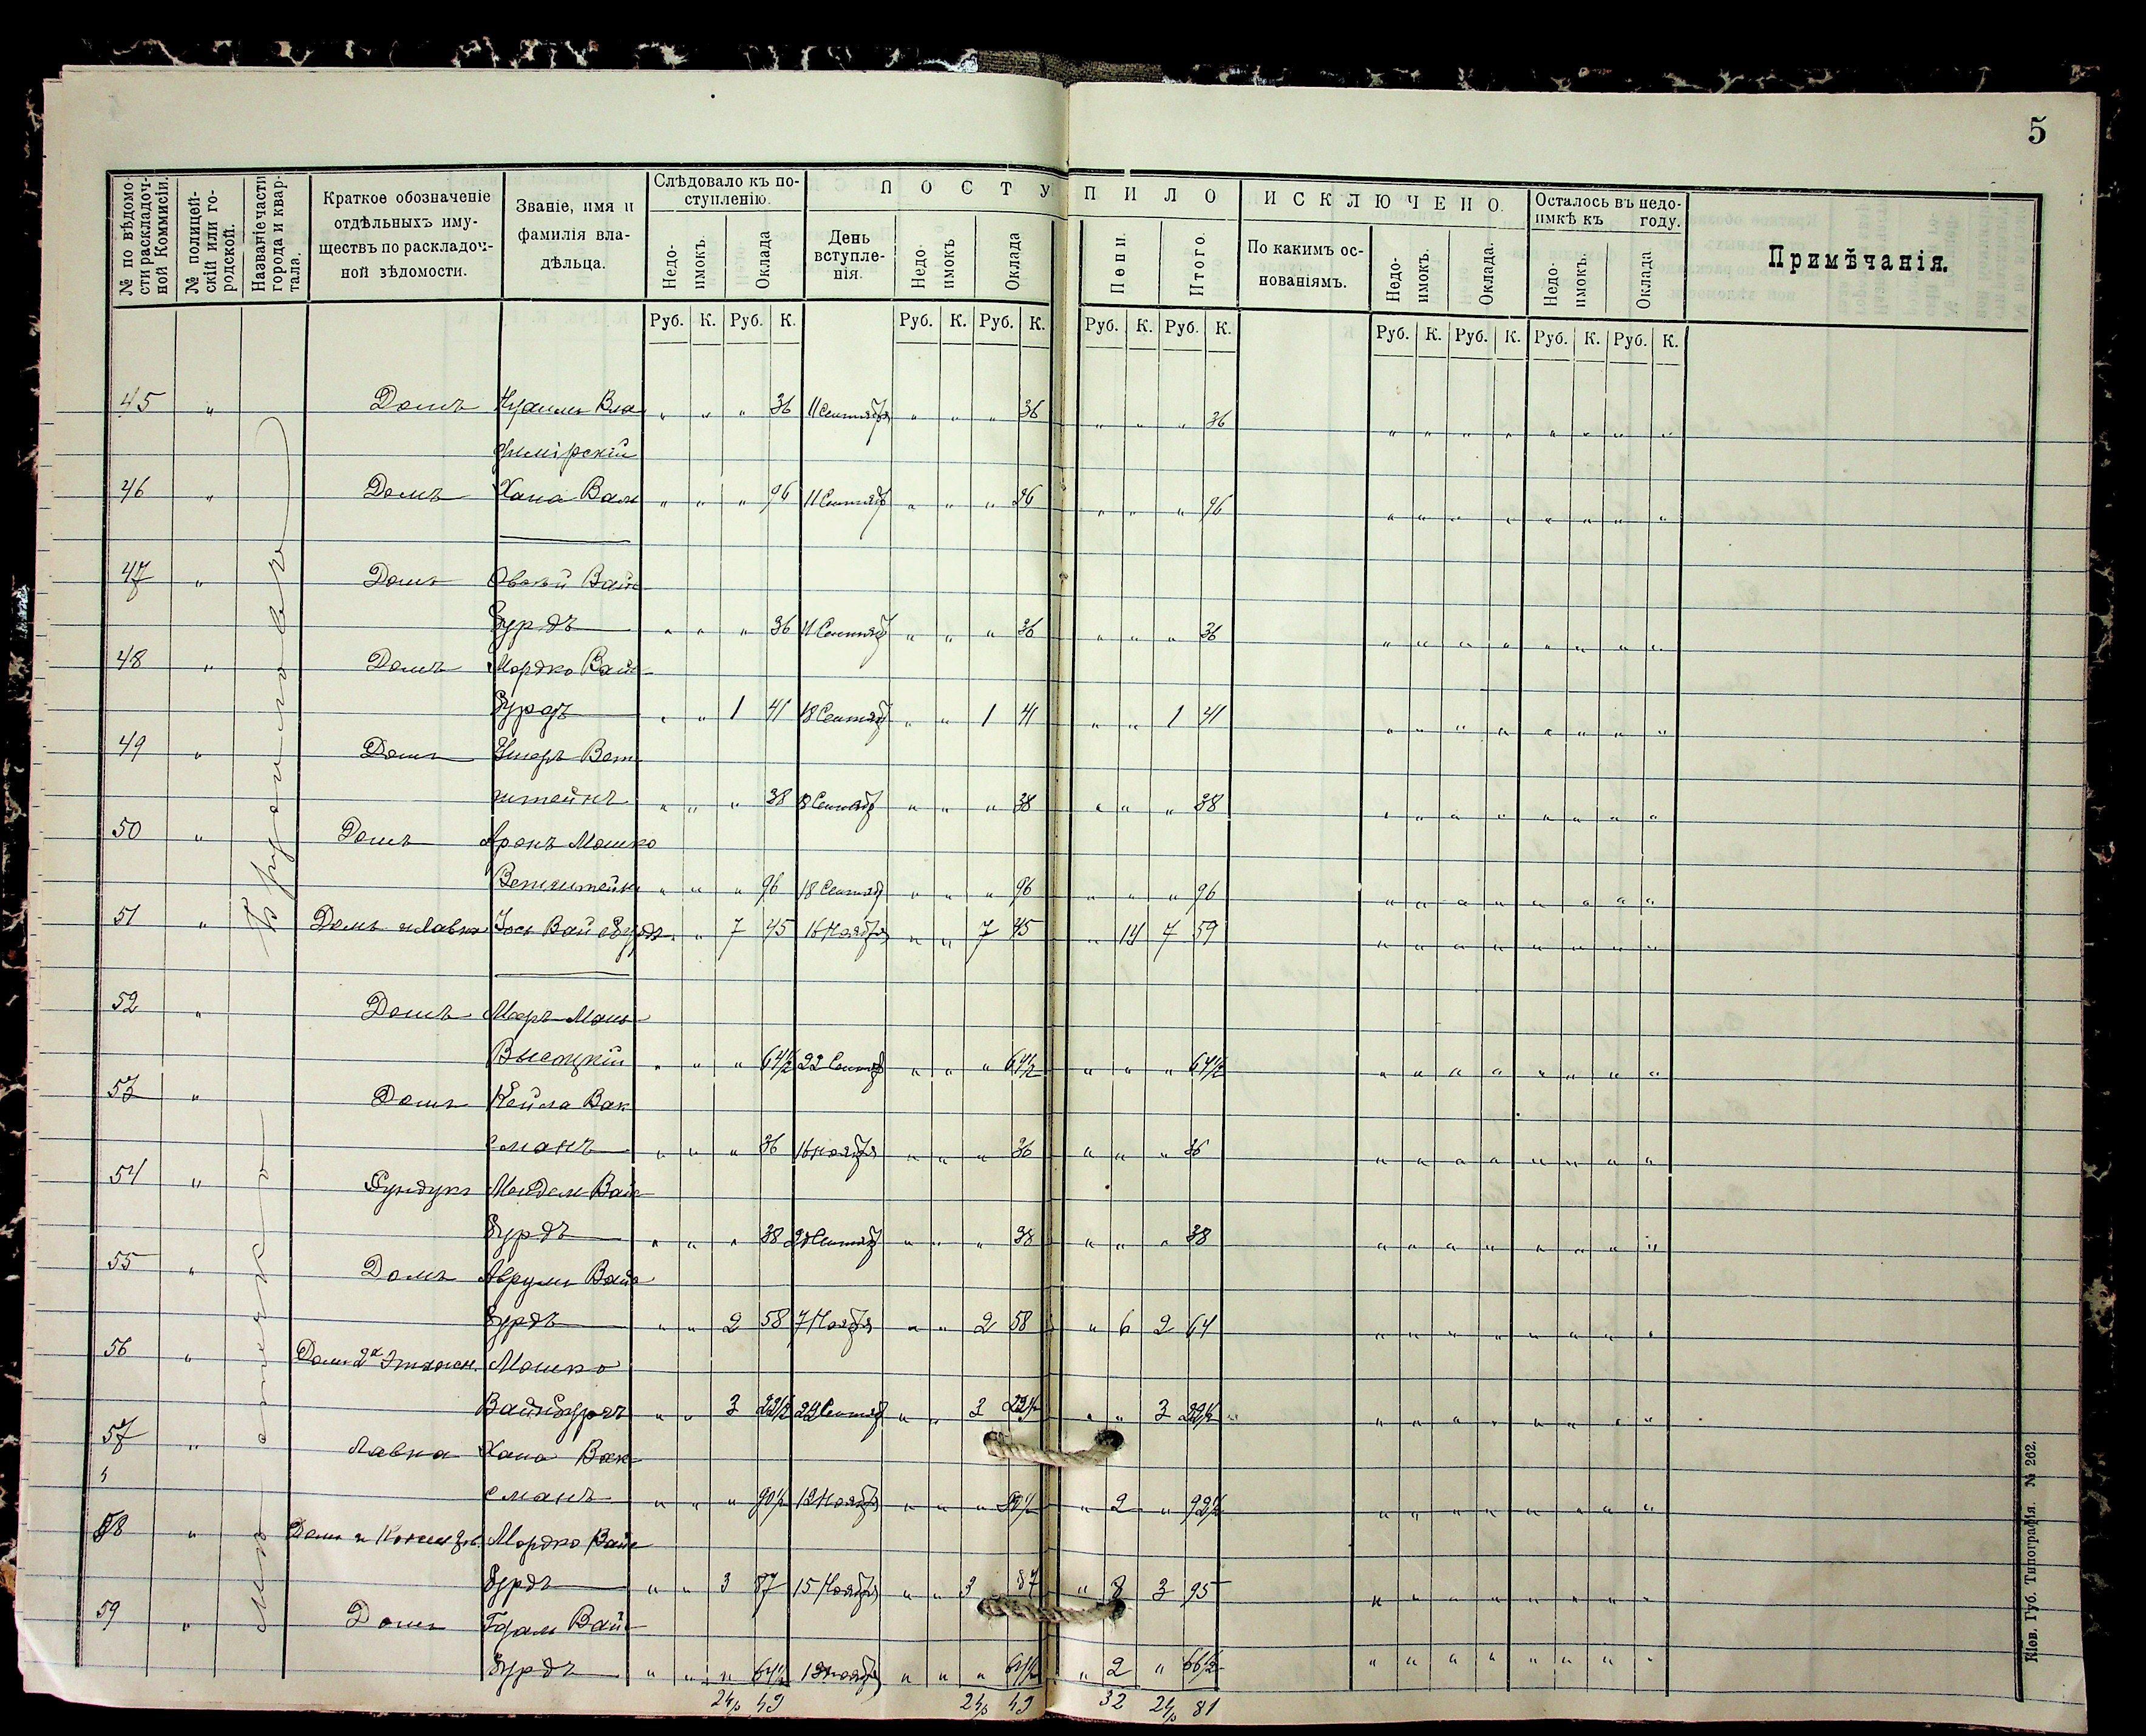 5
№ по вѣдомости раскладочной Коммисіи.
№ полицейскій или городской.
Названіе части города и квартала.
Краткое обозначеніе отдѣльныхъ имуществъ по раскладочной вѣдомости.
Званіе, имя и фамилія владѣльца.
Слѣдовало къ поступленію.
ПОСТУПИЛО
ИСКЛЮЧЕНО.
Осталось въ недоимкѣ къ году.
Примѣчанія.
Недоимокъ. Оклада
День вступленія.
Недоимокъ Оклада Пени. Итого.
По какимъ основаніямъ.
Недоимокъ. Оклада. Недоимокъ. Оклада
Руб. К. Руб. К. Руб. К. Руб. К. Руб. К. Руб. К. Руб. К. Руб. К. Руб. К. Руб. К.
45 " Домъ Вла
димірскій " " " 36 11 Сентября " " " 36 " " " 36
46 " Домъ Хана " " " 96 11 Сентяб " " " 96 " " " 96
47 " Домъ Вайс
бурдъ " " " 36 11 Сентяб " " " 36 " " " 36
48 " Домъ Мордко Вайс
бурдъ " " 1 41 18 Сентяб " " 1 41 " " 1 41
49 " Домъ
штейнъ " " " 38 18 Сентяб " " " 38 " " " 38
50 " Домъ Аронъ Мошко
" " " 96 18 Сентяб " " " 96 " " " 96
51 " Домъ и Лавка Іось Вайсбурдъ " " 7 45 16 Ноября " " 7 45 " 14 7 59
52 " Домъ
Высоцкій " " " 64½ 22 Сентяб " " " 64½ " " " 64½
53 " Домъ Кейла Вак
сманъ " " " 36 16 ноября " " " 36 " " " 36
54 " Сундукъ Мендель Вайс
бурдъ " " " 38 Сентяб " " " 38 " " " 38
55 " Домъ Аврумъ Вайс
бурдъ " " 2 58 7 Ноября " " 2 58 " 6 2 64
56 " Домъ 2х этажн. Мошко
Вайсбурдъ " " 3 22½ 22 Сентяб " " 3 22½ " " 3 22½
57 " Лавка Хана Вак
сманъ " " " 90½ 12 Ноября " " " 90½ " 2 " 92½
58 " Домъ и Мордко Вайс
бурдъ " " 3 87 15 Ноября " " 3 87 " 8 3 95
59 " Домъ Вайс
бурдъ " " " 64½ 12 ноября " " " 64½ " 2 " 66½
24р 49 24р 49 32 24р 81
Кіев. Губ. Типографія. № 262.